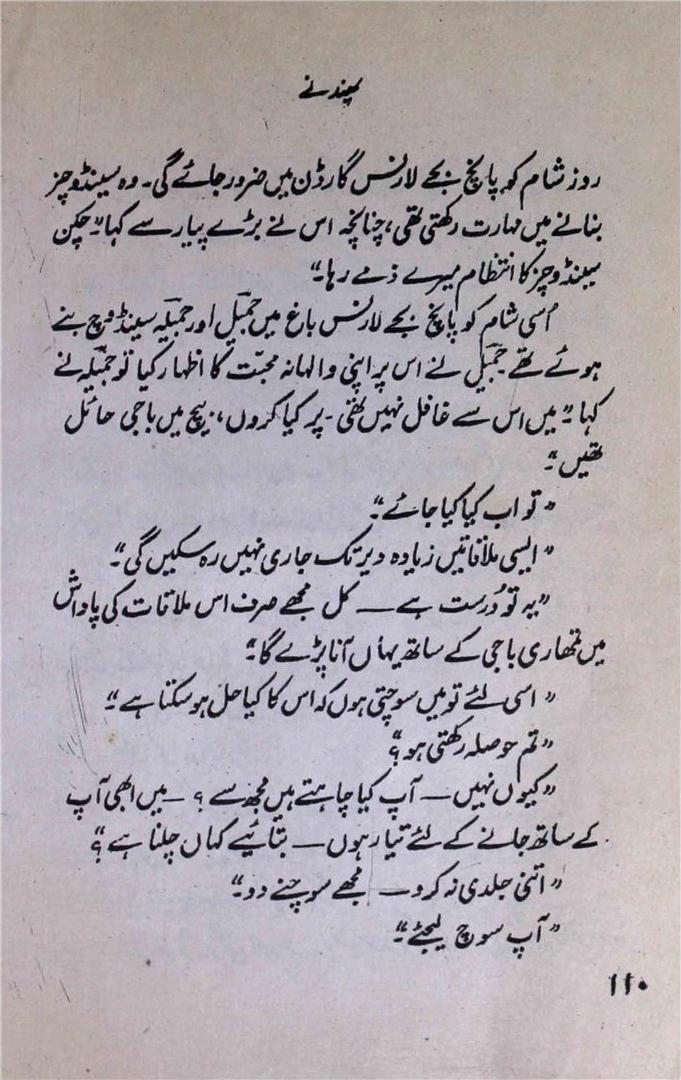 پھندنے
روز شام کو پانچ بجے لارنس گارڈن میں ضرور جائے گی۔ وہ سینڈوچز
بنانے میں مہارت رکھتی تھی، چنانچہ اس نے بڑے پیار سے کہا۔ ”چکن
سینڈوچز کا انتظام میرے ذمے رہا۔“
اُسی شام کو پانچ بجے لارنس باغ میں جمیل اور جمیلہ سینڈوچ بنے
ہوئے تھے جمیل نے اس پر اپنی والہانہ محبّت کا اظہار کیا تو جمیلہ نے
کہا۔ ”میں اس سے غافل نہیں تھی۔ پر کیا کروں، بیچ میں باجی حائل
تھیں“۔
”تو اب کیا کیا جائے“۔
”ایسی ملاقاتیں زیادہ دیر تک جاری نہیں رہ سکیں گی“۔
”یہ تو دُرست ہے — کل مجھے صرف اس ملاقات کی پاداش
میں تمھاری باجی کے ساتھ یہاں آنا پڑے گا“۔
”اسی لئے تو میں سوچتی ہوں کہ اس کا کیا حل ہو سکتا ہے“۔
”تم حوصلہ رکھتی ہو؟“
”کیوں نہیں — آپ کیا چاہتے ہیں مجھ سے؟ — میں ابھی آپ
کے ساتھ جانے کے لئے تیار ہوں — بتائیے کہاں چلنا ہے؟“
”اتنی جلدی نہ کرو — مجھے سوچنے دو۔“
”آپ سوچ لیجئے“۔
۱۱۰